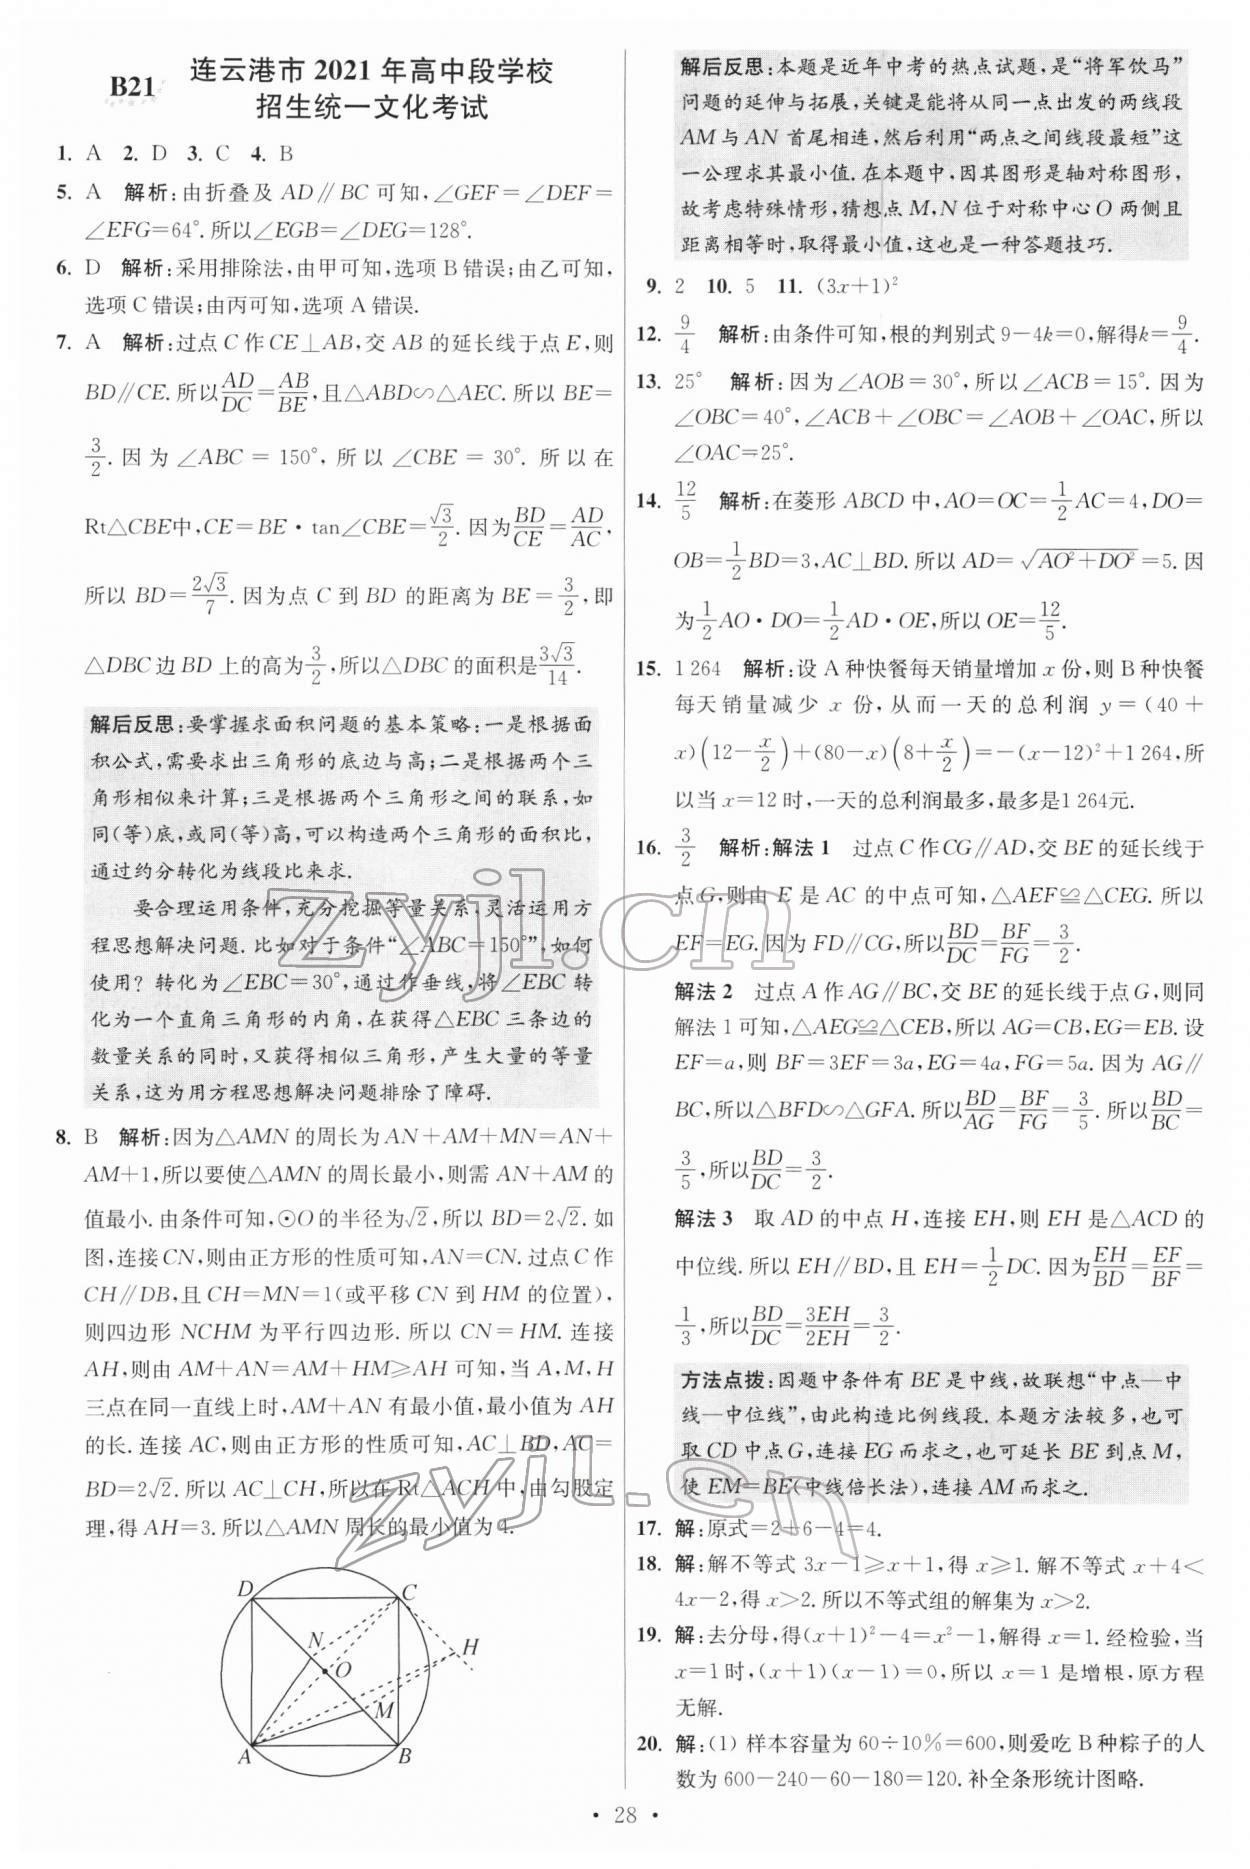 B21 连云港市 2021 年高中段学校
招生统一文化考试
1. A 2. D 3. C 4. B
5. A 解析:由折叠及 AD∥BC 可知,∠GEF=∠DEF=
∠EFG=64°.所以∠EGB=∠DEG=128°.
6. D 解析:采用排除法,由甲可知,选项 B 错误;由乙可知,
选项 C 错误;由丙可知,选项 A 错误.
7. A 解析:过点 C 作 CE⊥AB,交 AB 的延长线于点 E,则
BD∥CE.所以AD/DC=AB/BE,且△ABD∽△AEC.所以 BE=
3/2.因为∠ABC=150°,所以∠CBE=30°.所以在
Rt△CBE中,CE=BE·tan∠CBE=√3/2.因为BD/CE=AD/AC,
所以 BD=2√3/7.因为点 C 到 BD 的距离为 BE=3/2,即
△DBC 边 BD 上的高为3/2,所以△DBC 的面积是3√3/14.
解后反思:要掌握求面积问题的基本策略:一是根据面
积公式,需要求出三角形的底边与高;二是根据两个三
角形相似来计算;三是根据两个三角形之间的联系,如
同(等)底,或同(等)高,可以构造两个三角形的面积比,
通过约分转化为线段比来求.
要合理运用条件,充分挖掘等量关系,灵活运用方
程思想解决问题.比如对于条件“∠ABC=150°”,如何
使用?转化为∠EBC=30°,通过作垂线,将∠EBC 转
化为一个直角三角形的内角,在获得△EBC 三条边的
数量关系的同时,又获得相似三角形,产生大量的等量
关系,这为用方程思想解决问题排除了障碍.
8. B 解析:因为△AMN 的周长为 AN+AM+MN=AN+
AM+1,所以要使△AMN 的周长最小,则需 AN+AM 的
值最小.由条件可知,⊙O 的半径为√2,所以 BD=2√2.如
图,连接 CN,则由正方形的性质可知,AN=CN.过点 C 作
CH∥DB,且 CH=MN=1(或平移 CN 到 HM 的位置),
则四边形 NCHM 为平行四边形.所以 CN=HM.连接
AH,则由 AM+AN=AM+HM≥AH 可知,当 A,M,H
三点在同一直线上时,AM+AN 有最小值,最小值为 AH
的长.连接 AC,则由正方形的性质可知,AC⊥BD,AC=
BD=2√2.所以 AC⊥CH,所以在 Rt△ACH 中,由勾股定
理,得 AH=3.所以△AMN 周长的最小值为 4.
D C
N H
O
M
A B
解后反思:本题是近年中考的热点试题,是“将军饮马”
问题的延伸与拓展,关键是能将从同一点出发的两线段
AM 与 AN 首尾相连,然后利用“两点之间线段最短”这
一公理求其最小值.在本题中,因其图形是轴对称图形,
故考虑特殊情形,猜想点 M,N 位于对称中心 O 两侧且
距离相等时,取得最小值,这也是一种答题技巧.
9. 2 10. 5 11. (3x+1)²
12. 9/4 解析:由条件可知,根的判别式 9-4k=0,解得k=9/4.
13. 25° 解析:因为∠AOB=30°,所以∠ACB=15°.因为
∠OBC=40°,∠ACB+∠OBC=∠AOB+∠OAC,所以
∠OAC=25°.
14. 12/5 解析:在菱形 ABCD 中,AO=OC=1/2AC=4,DO=
OB=1/2BD=3,AC⊥BD.所以 AD=√(AO²+DO²)=5.因
为1/2AO·DO=1/2AD·OE,所以 OE=12/5.
15. 1 264 解析:设 A 种快餐每天销量增加 x 份,则 B 种快餐
每天销量减少 x 份,从而一天的总利润 y=(40+
x)(12-x/2)+(80-x)(8+x/2)=-(x-12)²+1 264,所
以当 x=12 时,一天的总利润最多,最多是1 264元.
16. 3/2 解析:解法 1 过点 C 作 CG∥AD,交 BE 的延长线于
点 G,则由 E 是 AC 的中点可知,△AEF≌△CEG.所以
EF=EG.因为 FD∥CG,所以BD/DC=BF/FG=3/2.
解法 2 过点 A 作 AG∥BC,交 BE 的延长线于点 G,则同
解法 1 可知,△AEG≌△CEB,所以 AG=CB,EG=EB.设
EF=a,则 BF=3EF=3a,EG=4a,FG=5a.因为 AG∥
BC,所以△BFD∽△GFA.所以BD/AG=BF/FG=3/5.所以BD/BC=
3/5,所以BD/DC=3/2.
解法 3 取 AD 的中点 H,连接 EH,则 EH 是△ACD 的
中位线.所以 EH∥BD,且 EH=1/2DC.因为EH/BD=EF/BF=
1/3,所以BD/DC=3EH/2EH=3/2.
方法点拨:因题中条件有 BE 是中线,故联想“中点—中
线—中位线”,由此构造比例线段.本题方法较多,也可
取 CD 中点 G,连接 EG 而求之,也可延长 BE 到点 M,
使 EM=BE(中线倍长法),连接 AM 而求之.
17. 解:原式=2+6-4=4.
18. 解:解不等式 3x-1≥x+1,得 x≥1.解不等式 x+4<
4x-2,得 x>2.所以不等式组的解集为 x>2.
19. 解:去分母,得(x+1)²-4=x²-1,解得 x=1.经检验,当
x=1时,(x+1)(x-1)=0,所以 x=1 是增根,原方程
无解.
20. 解:(1) 样本容量为 60÷10%=600,则爱吃 B 种粽子的人
数为 600-240-60-180=120.补全条形统计图略.
zyjl.cn
zyjl.cn
· 28 ·